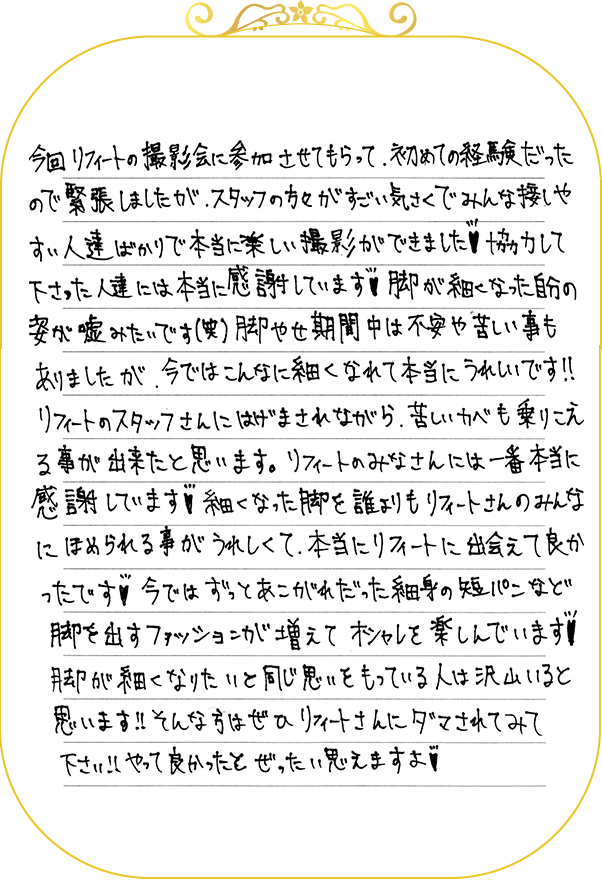 今回リフィートの撮影会に参加させてもらって、初めての経験だった
ので緊張しましたが、スタッフの方々がすごい気さくでみんな接しや
すい人達ばかりで本当に楽しい撮影ができました♥協力して
下さった人達には本当に感謝しています♥脚が細くなった自分の
姿が嘘みたいです(笑)脚やせ期間中は不安や苦しい事も
ありましたが、今ではこんなに細くなれて本当にうれしいです!!
リフィートのスタッフさんにはげまされながら、苦しいカベも乗りこえ
る事が出来たと思います。リフィートのみなさんには一番本当に
感謝しています♥細くなった脚を誰よりもリフィートさんのみんな
にほめられる事がうれしくて、本当にリフィートに出会えて良か
ったです♥今ではずっとあこがれだった細身の短パンなど
脚を出すファッションが増えてオシャレを楽しんでいます♥
脚が細くなりたいと同じ思いをもっている人は沢山いると
思います!!そんな方はぜひリフィートさんにダマされてみて
下さい!!やって良かったとぜったい思えますよ♥